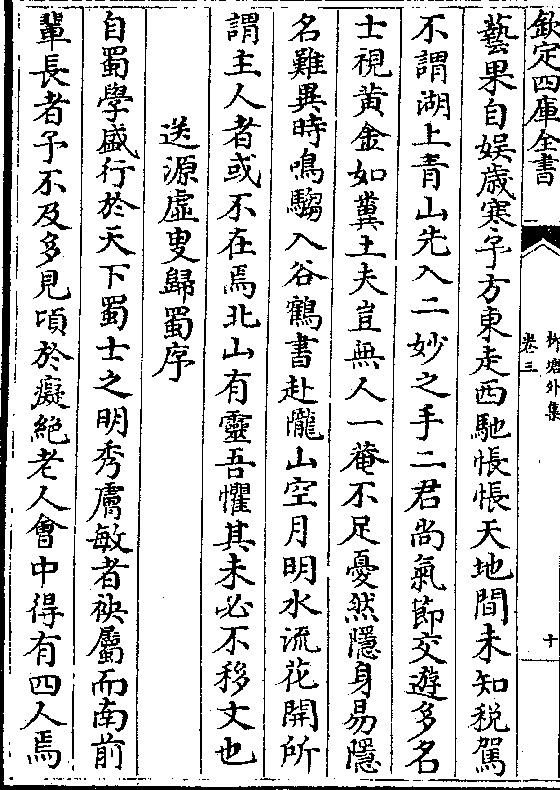 欽定四庫全書
柳塘外集
卷三
十
藝果自娛歲寒予方東走西馳悵悵天地間未知稅駕
不謂湖上青山先入二妙之手二君尚氣節交遊多名
士視黃金如糞土夫豈無人一菴不足憂然隱身易隱
名難異時鳴騶入谷鶴書赴隴山空月明水流花開所
謂主人者或不在焉北山有靈吾懼其未必不移文也
送源虛叟歸蜀序
自蜀學盛行於天下蜀士之明秀膚敏者袂屬而南前
輩長者予不及多見頃於癡絕老人會中得有四人焉